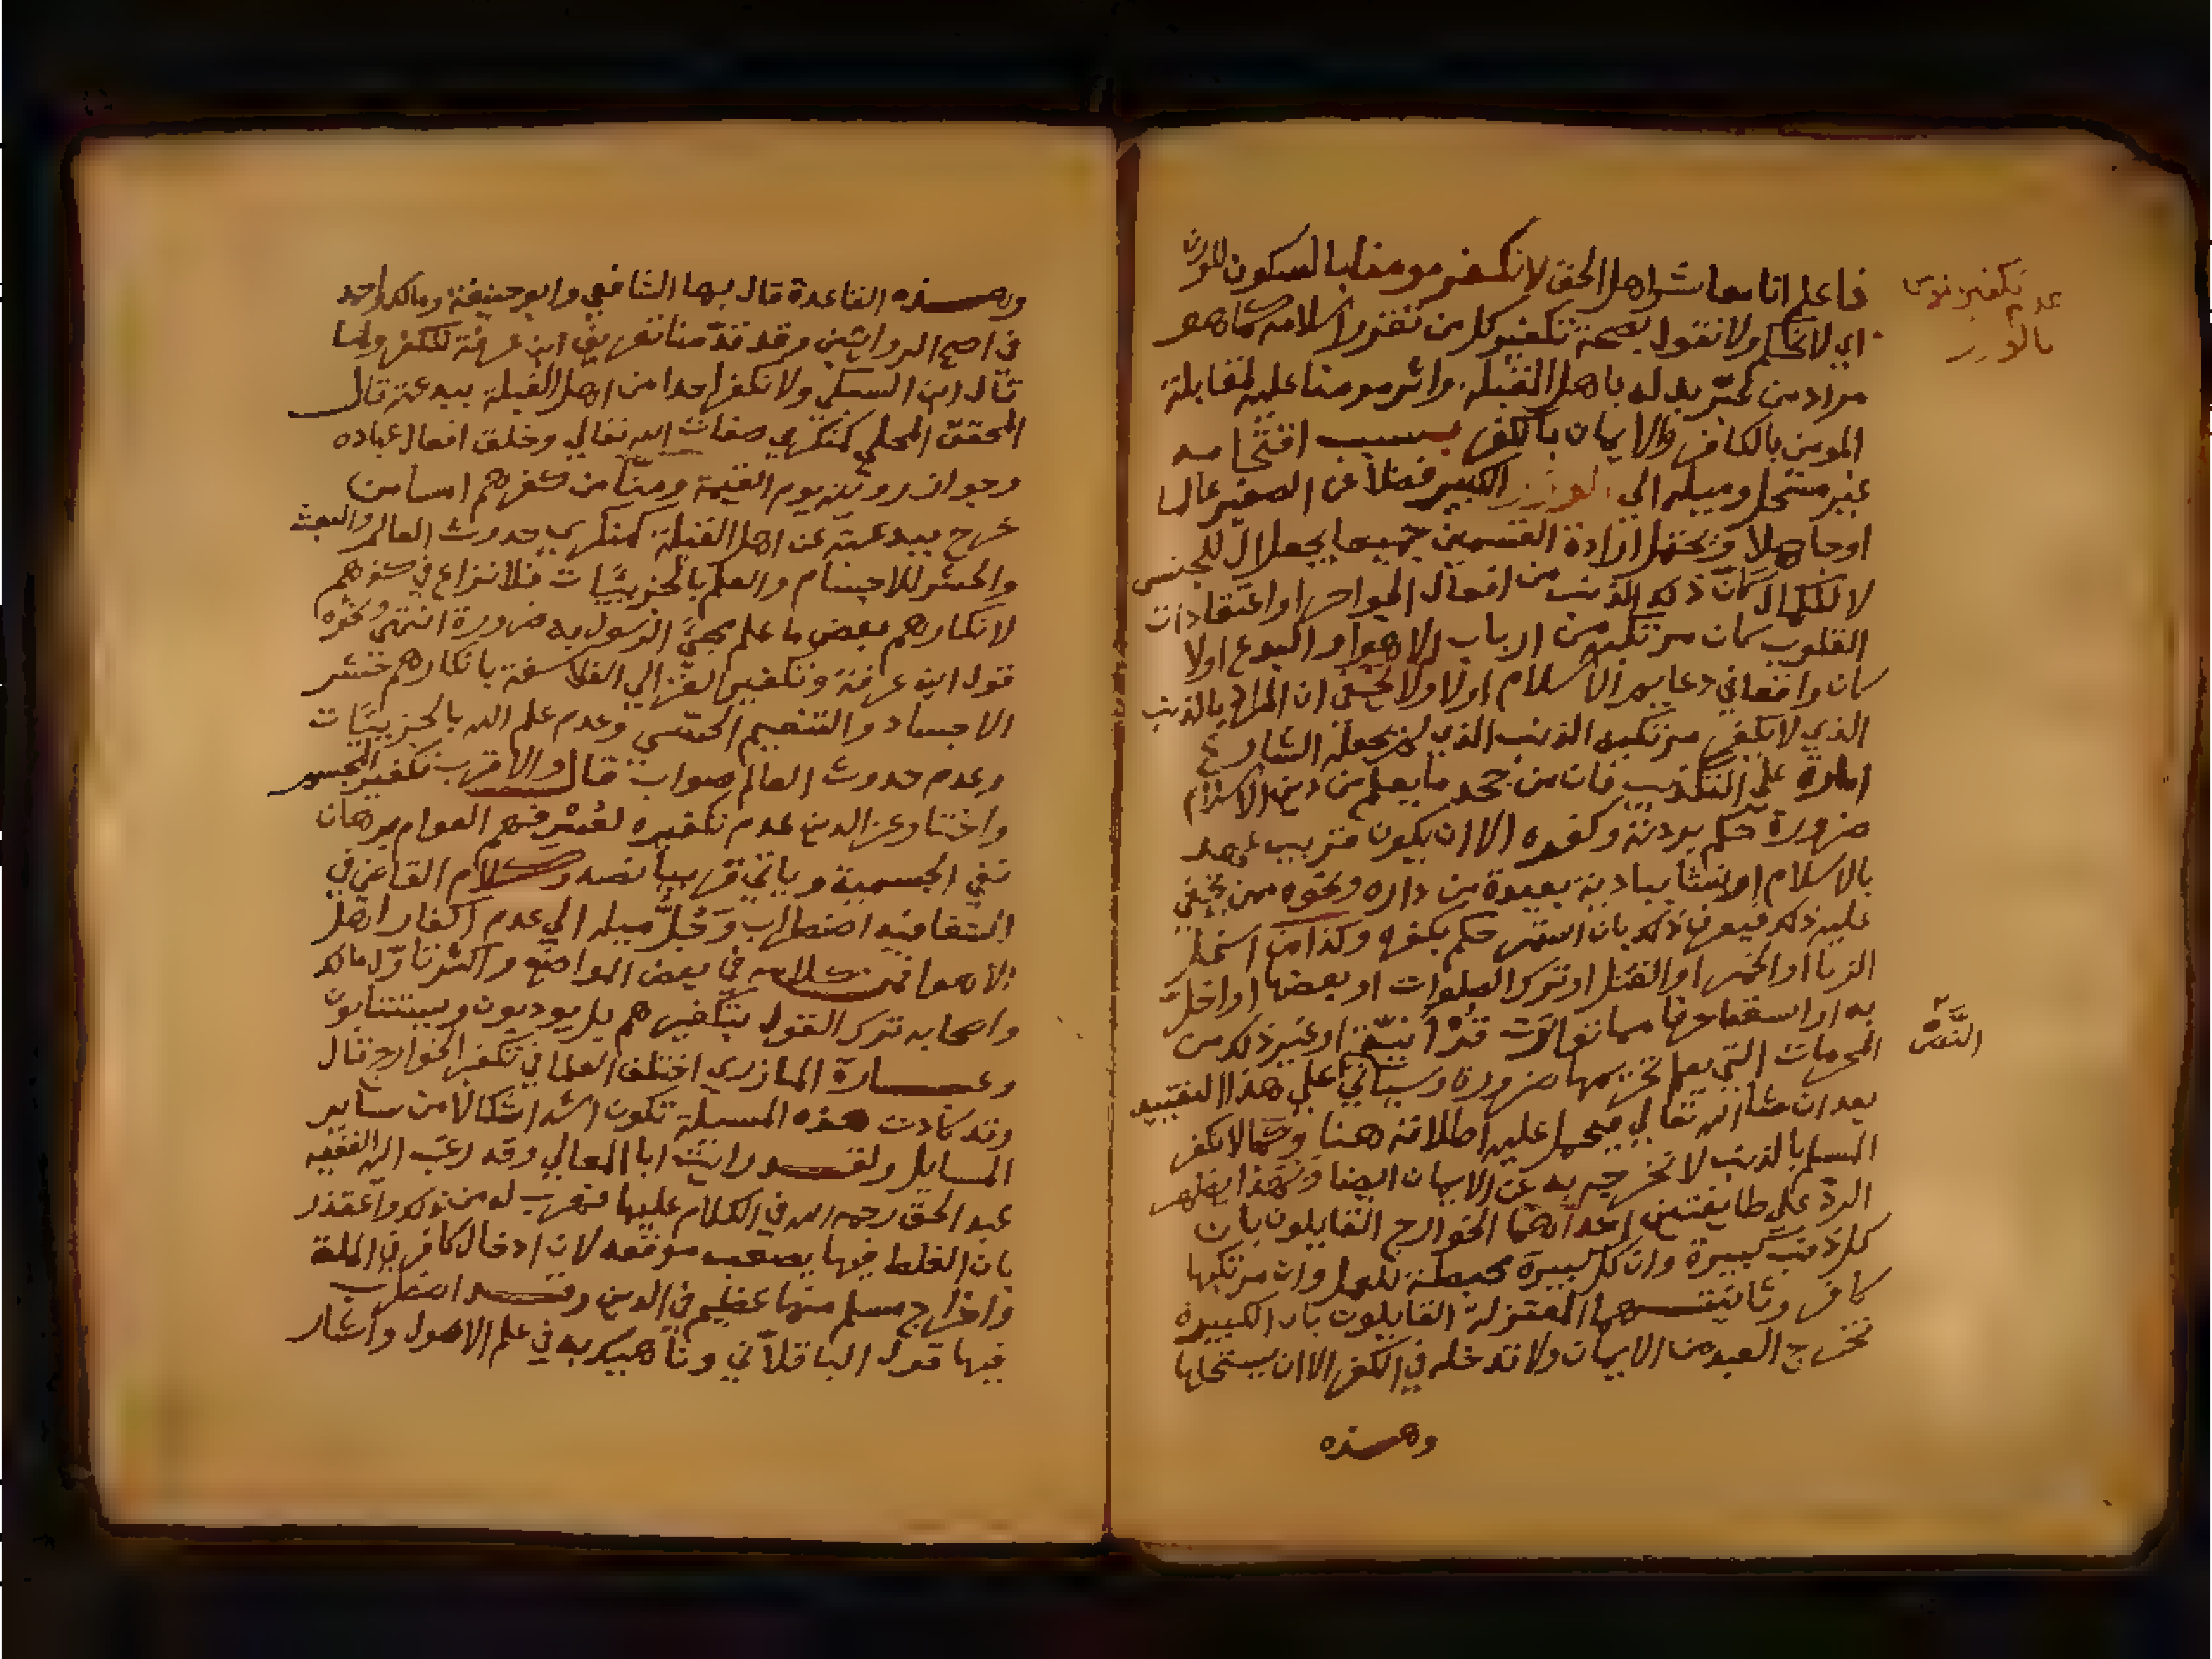 فاعلم انا معاشر اهل الحق لا نكفر مومنا بالسكون للوزن
اي لا نحكم ولا نقول بصحة تكفير كل من تقرر اسلامه كما هو
مراد من عبر بدله باهل القبلة واثر مومنا عليه لمقابلة
المومن بالكافر والايمان بالكفر بسبب اقتحامه
غير مستحل وميله الي الوزر الكبير فضلا عن الصغير عالما
او جاهلا ويحتمل ارادة القسمين جميعا بجعل ال للجنس
لا للكمال كان ذلك الذنب من افعال الجوارح او اعتقادات
القلوب كان مرتكبه من ارباب الاهوا والبدع اولا
كان واقعا في دعايم الاسلام اولا ولا يخفي ان المراد بالذنب
الذي لا يكفر مرتكبه الذنب الذي لم يجعله الشارع
امارة علي التكذيب فان من جحد ما يعلم من دين الاسلام
ضرورة حكم بردته وكفره الا ان يكون قريب عهد
بالاسلام او نشا ببادية بعيدة من داره ونحوه ممن يخفي
عليه ذلك فيعرف ذلك بان استمر حكم بكفره وكذا من استحل
الزنا او الخمر او القتل او ترك الصلوات او بعضها او اخل
به او اسقط حرفا مما تواترت قرآنيته او غير ذلك من
المحرمات التي يعلم تحريمها ضرورة وسياتي علي هذا التقييد
بعد ان شا الله تعالي فيحمل عليه اطلاقه هنا وكما لا نكفر
المسلم بالذنب لا نخرجه به عن الايمان ايضا وبهذا يظهر
الرد علي طايفتين احداهما الخوارج القايلون بان
كل ذنب كبيرة وان كل كبيرة محبطة للعمل وان مرتكبها
كافر وثانيتهما المعتزلة القايلون بان الكبيرة
تخرج العبد من الايمان ولا تدخله في الكفر الا ان يستحلها
وهذه
عدم تكفير مومن
بالوزر
وهذه القاعدة قال بها الشافعي وابو حنيفة ومالك واحمد
في اصح الروايتين وقد قدمنا تعريف ابن عرفة للكفر ولما
قال ابن السبكي ولا نكفر احدا من اهل القبلة ببدعة قال
المحقق المحلي كمنكري صفات الله تعالي وخلق افعال عباده
وجواز رويته يوم القيمة ومنا من كفرهم اما من
خرج ببدعته عن اهل القبلة كمنكري حدوث العالم والبعث
والحشر للاجسام والعلم بالجزييات فلا نزاع في كفرهم
لانكارهم بعض ما علم مجيء الرسول به ضرورة انتهي ونحوه
قول ابن عرفة وتكفير الغزالي الفلاسفة بانكارهم حشر
الاجساد والتنعيم الحسي وعدم علم الله بالجزييات
وعدم حدوث العالم صواب قال والاقرب تكفير المجسم
واختار عز الدين عدم تكفيره لعسر فهم العوام برهان
نفي الجسمية وياتي قريبا نصه وكلام القاضي في
الشفا فيه اضطراب وجل ميله الي عدم اكفار اهل
الاهوا فمن كلامه في بعض المواضع واكثرنا وال مالك
واصحابه ترك القول بتكفيرهم بل يودبون ويستتابون
وعبارة المازري اختلف العلما في تكفير الخوارج قال
وقد كادت هذه المسيلة تكون اشد اشكالا من ساير
المسايل ولقد رايت ابا المعالي وقد رغب اليه الفقيه
عبد الحق رحمه الله في الكلام عليها فهرب له من ذلك واعتذر
بان الغلط فيها يصعب موقعه لان ادخال كافر في الملة
واخراج مسلم منها عظيم في الدين وقد اضطرب
فيها قول الباقلاني وناهيك به في علم الاصول واشار